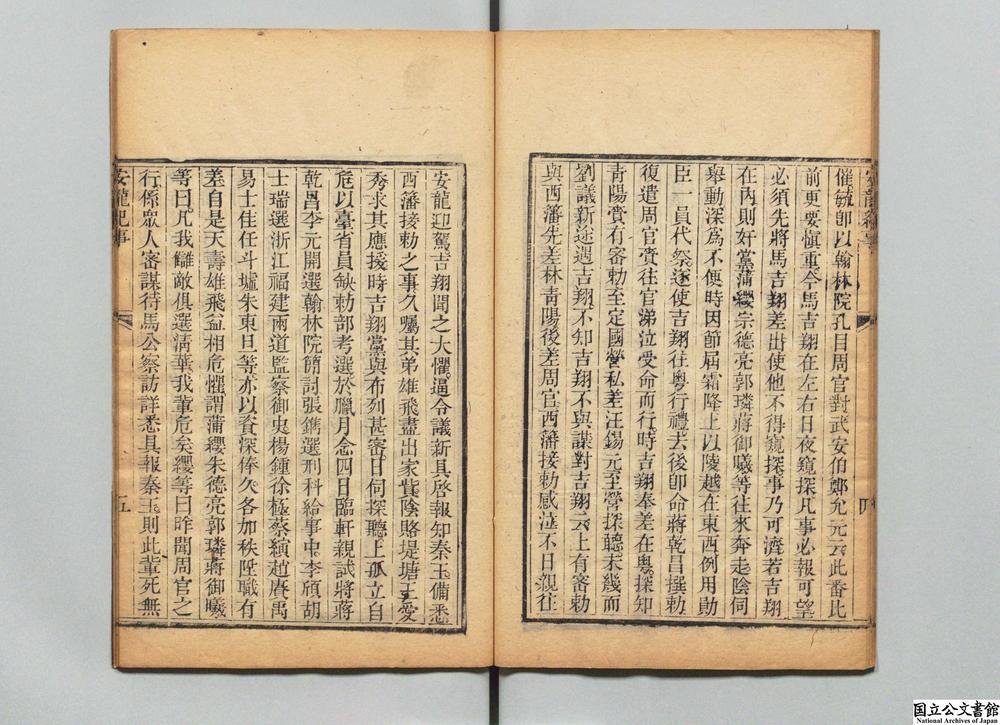 催毓卽以翰林院孔目周官對武安伯鄭允元云此番比
前更要愼重今馬吉翔在左右日夜窺探凡事必報可望
必須先將馬吉翔差出使他不得窺探事乃可濟若吉翔
在内則奸黨蒲纓宗德亮郭璘蔣御曦等往來奔走陰伺
舉動深爲不便時因節屆霜降上以陵越在東西例用勛
臣一員代祭遂使吉翔往粵行禮去後卽命蔣乾昌撰勅
復遣周官賫往官涕泣受命而行時吉翔奉差在粵探知
靑陽賫有密勅至定國營私差汪錫元至營探聽未幾而
劉議新途遇吉翔不知吉翔不與謀對吉翔云上有密勅
與西藩先差林靑陽後差周官西藩接勅感泣不日親往
四
安龍迎駕吉翔聞之大懼逼令議新具啓報知秦王備悉
西藩接勅之事久囑其弟雄飛盡出家貲陰賂堤塘王愛
秀求其應援時吉翔黨與布列甚密日伺探聽上孤立自
危以臺省員缺勅部考選於臘月念四日臨軒親試將蔣
乾昌李元開選翰林院簡討張鐫選刑科給事中李頎胡
士瑞選浙江福建兩道監察御史楊鍾徐極蔡縯趙賡禹
易士佳任斗墟朱東旦等亦以資深俸久各加秩陞職有
差自是天壽雄飛益相危懼謂蒲纓朱德亮郭璘蔣御曦
等曰凡我讎敵俱選淸華我輩危矣纓等曰昨聞周官之
行係眾人密謀待馬公察訪詳悉具報秦王則此輩死無
安龍紀事
五
国立公文書館
National Archives of Japan